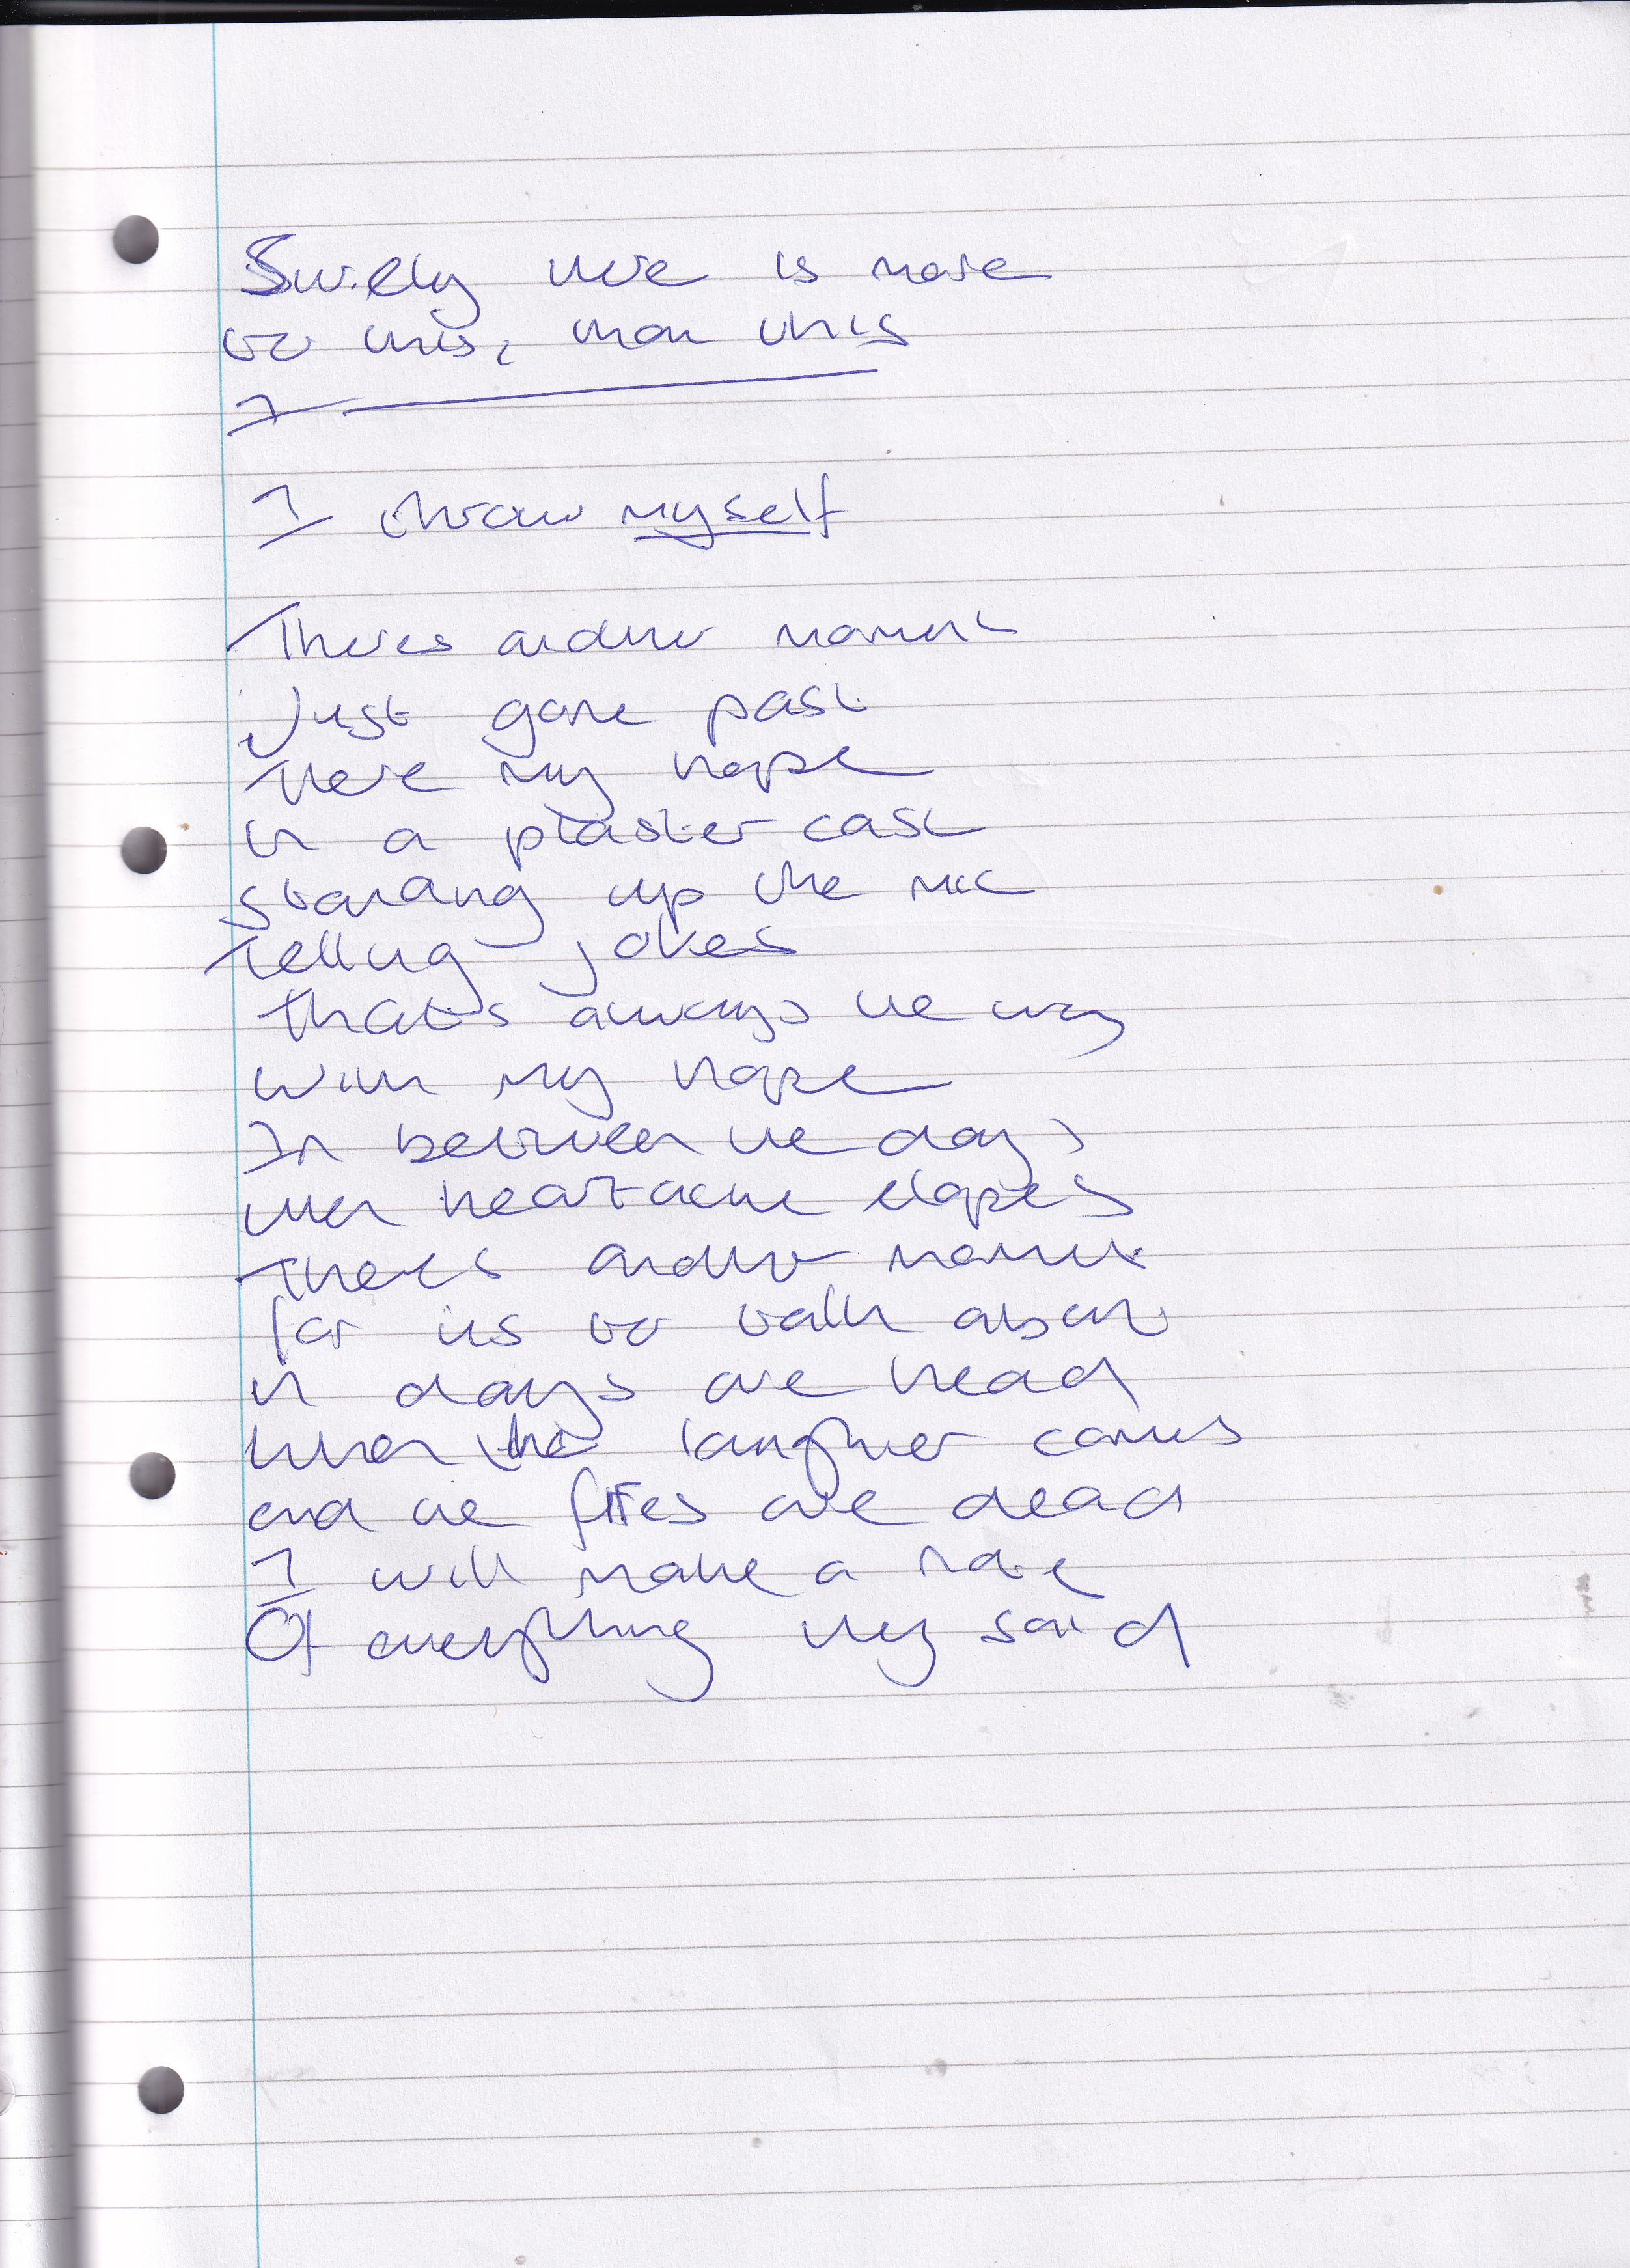 Surely there is more
to this, than this
I
I throw myself
Theres another moment
Just gone past
There my hope
in a plaster cast
standing up the mic
Telling jokes
That's always the way
with my hope
In between the days
when heartache elopes
Theres another moment
for us to talk about
in days ahead
When the laughter comes
and the fires are dead
I will make a note
Of everything they said